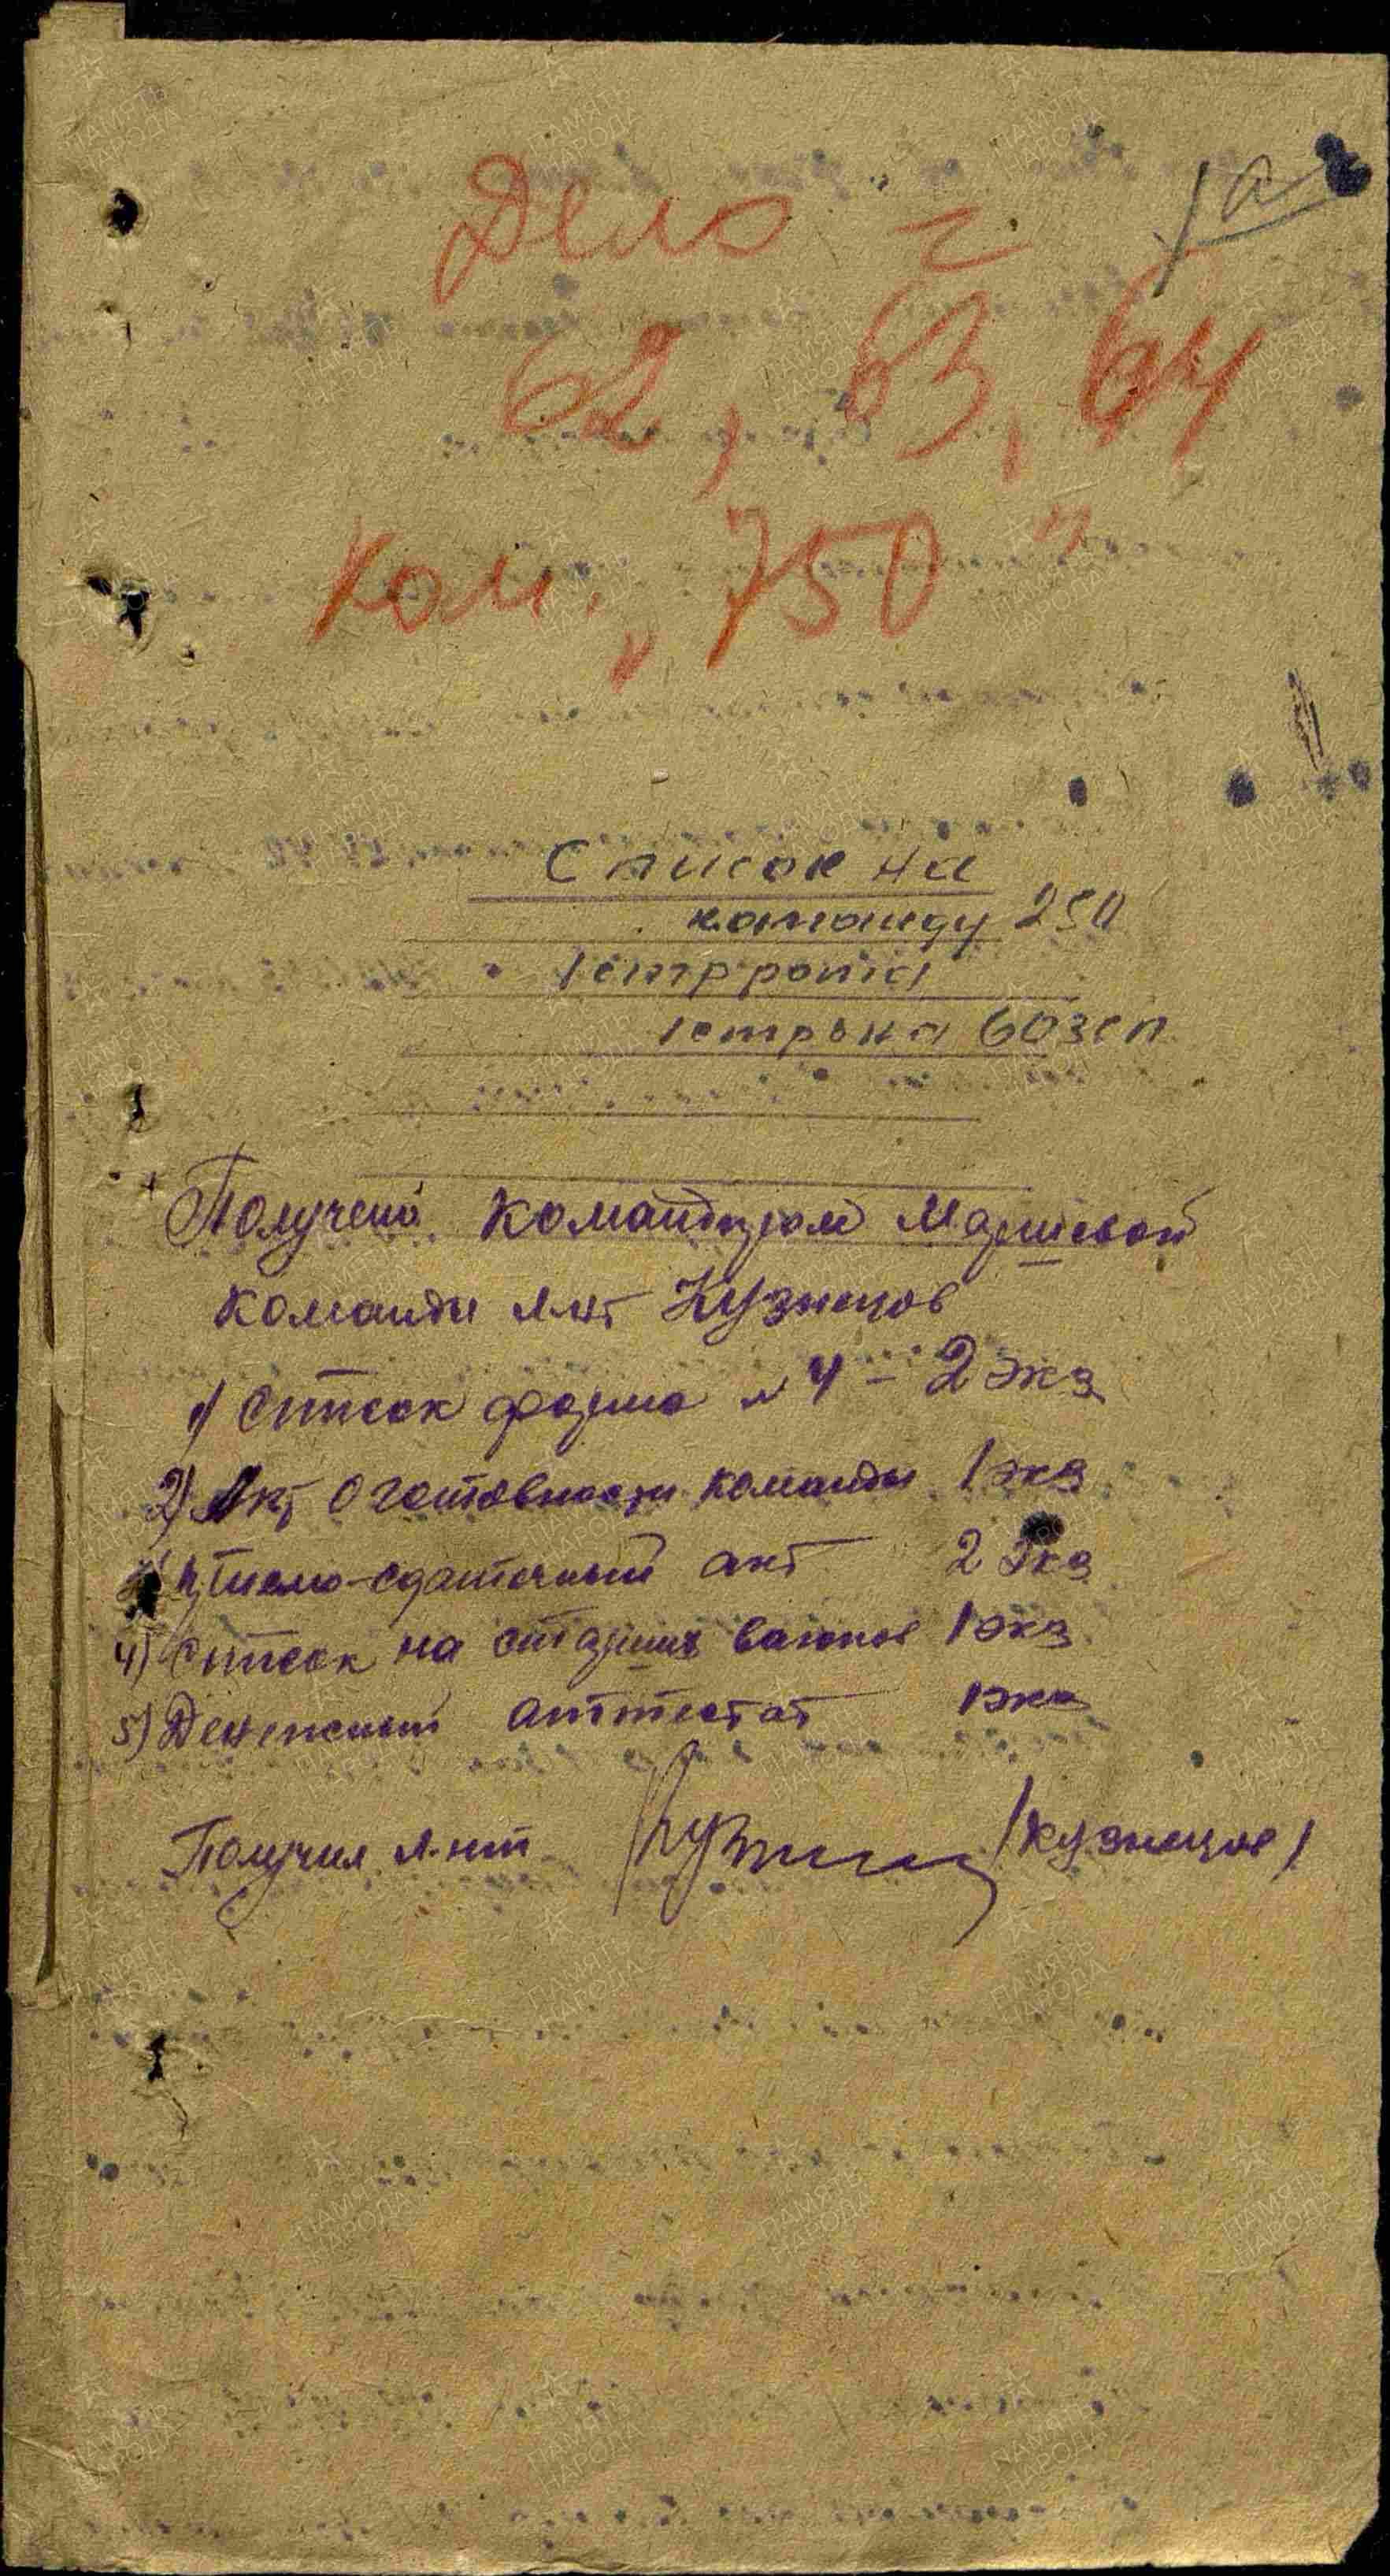 1а
Дело =
62, 63, 64
Ком. „750"
Список на
команду 250
1 стр рота
1 стр б-на 60 зсп
Получено командиром маршевой
команды л-нт Кузнецов
1) Список форма № 4 – 2 экз
2) Акт о готовности команды 1 экз
3) Приемо-сдаточный акт 2 экз
4) Список на старших вагонов 1 экз
5) Денежный аттестат 1 экз
Получил л-нт /Кузнецов/